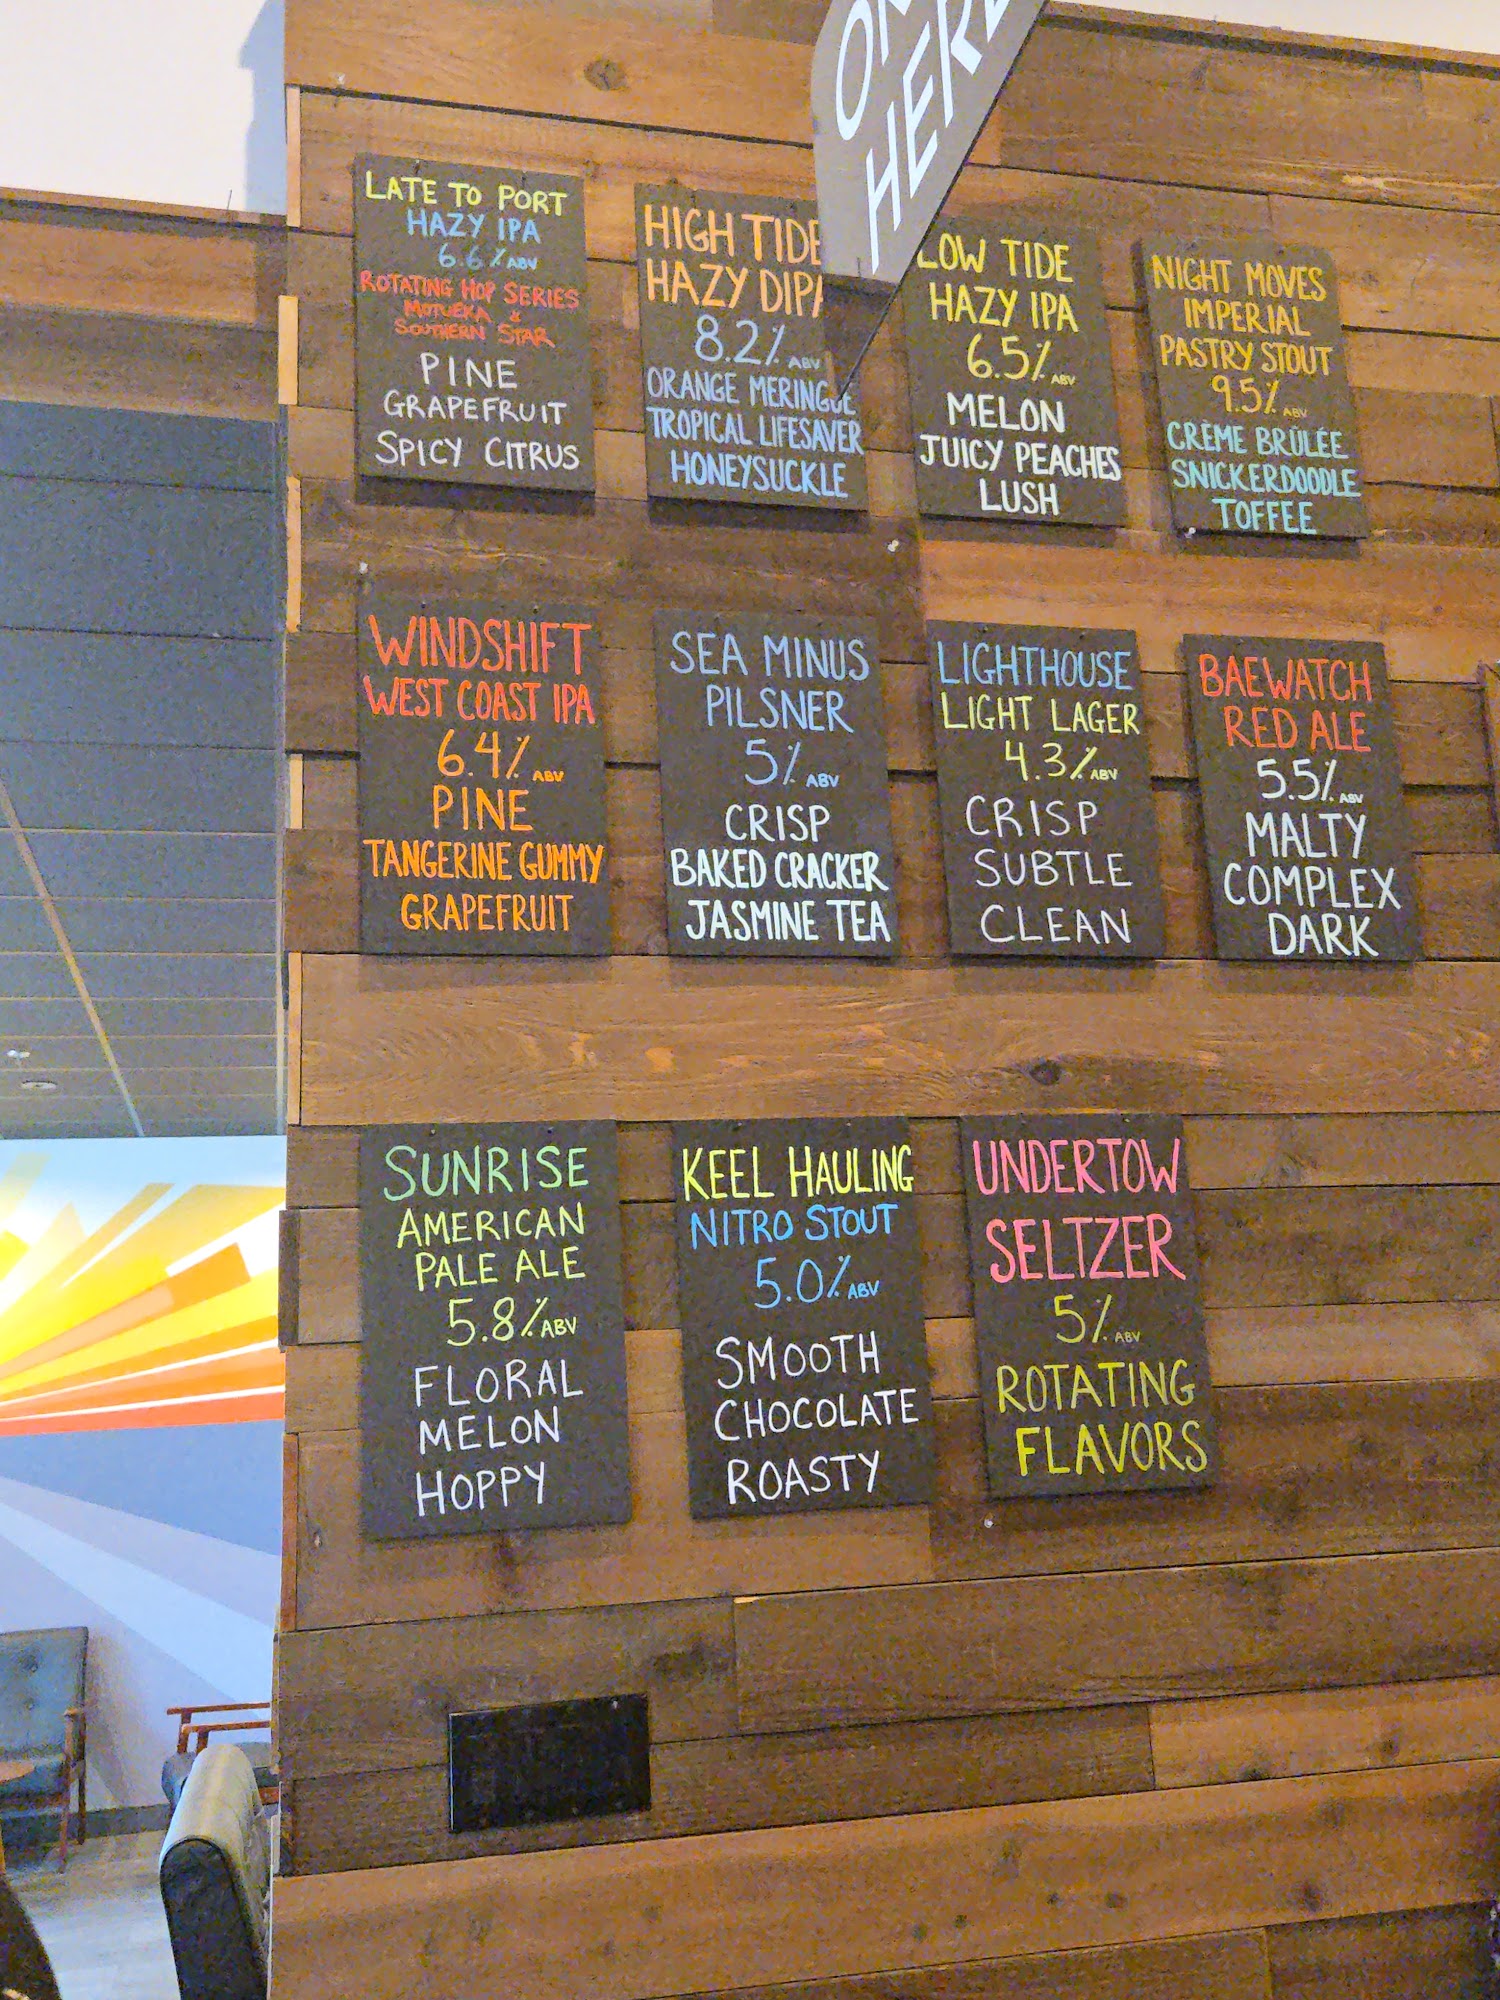 HERE
LATE TO PORT
HAZY IPA
6.6% ABV
ROTATING HOP SERIES
MOTUEKA &
SOUTHERN STAR
PINE
GRAPEFRUIT
SPICY CITRUS
HIGH TIDE
HAZY DIPA
8.2% ABV
ORANGE MERINGUE
TROPICAL LIFESAVER
HONEYSUCKLE
LOW TIDE
HAZY IPA
6.5% ABV
MELON
JUICY PEACHES
LUSH
NIGHT MOVES
IMPERIAL
PASTRY STOUT
9.5% ABV
CRÈME BRÛLÉE
SNICKERDOODLE
TOFFEE
WINDSHIFT
WEST COAST IPA
6.4% ABV
PINE
TANGERINE GUMMY
GRAPEFRUIT
SEA MINUS
PILSNER
5% ABV
CRISP
BAKED CRACKER
JASMINE TEA
LIGHTHOUSE
LIGHT LAGER
4.3% ABV
CRISP
SUBTLE
CLEAN
BAEWATCH
RED ALE
5.5% ABV
MALTY
COMPLEX
DARK
SUNRISE
AMERICAN
PALE ALE
5.8% ABV
FLORAL
MELON
HOPPY
KEEL HAULING
NITRO STOUT
5.0% ABV
SMOOTH
CHOCOLATE
ROASTY
UNDERTOW
SELTZER
5% ABV
ROTATING
FLAVORS